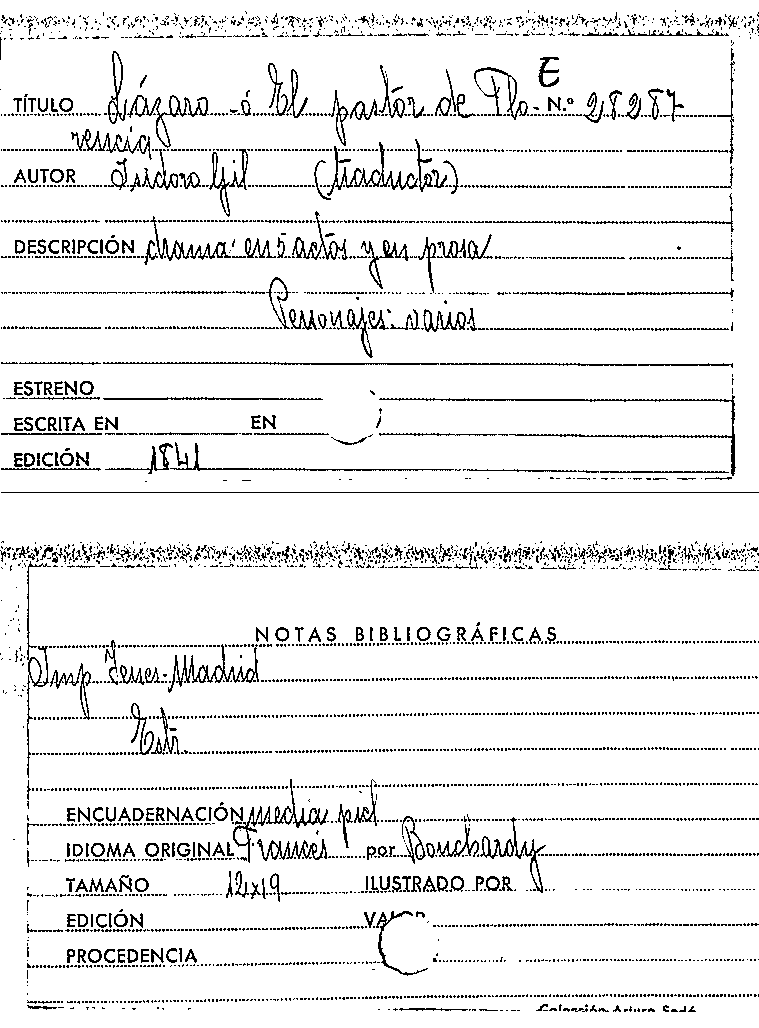 E
TÍTULO Lázaro - ó El pastor de Flo- N.º 28287
rencia
AUTOR Isidoro Gil (traductor)
DESCRIPCIÓN drama en 5 actos y en prosa
Personajes: varios
ESTRENO
ESCRITA EN EN
EDICIÓN 1841
NOTAS BIBLIOGRÁFICAS
Imp Yenes - Madrid
Estr.
ENCUADERNACIÓN media piel
IDIOMA ORIGINAL Francés por Bouchardy
TAMAÑO 12x19 ILUSTRADO POR
EDICIÓN VALOR
PROCEDENCIA
Colección Arturo Sedó